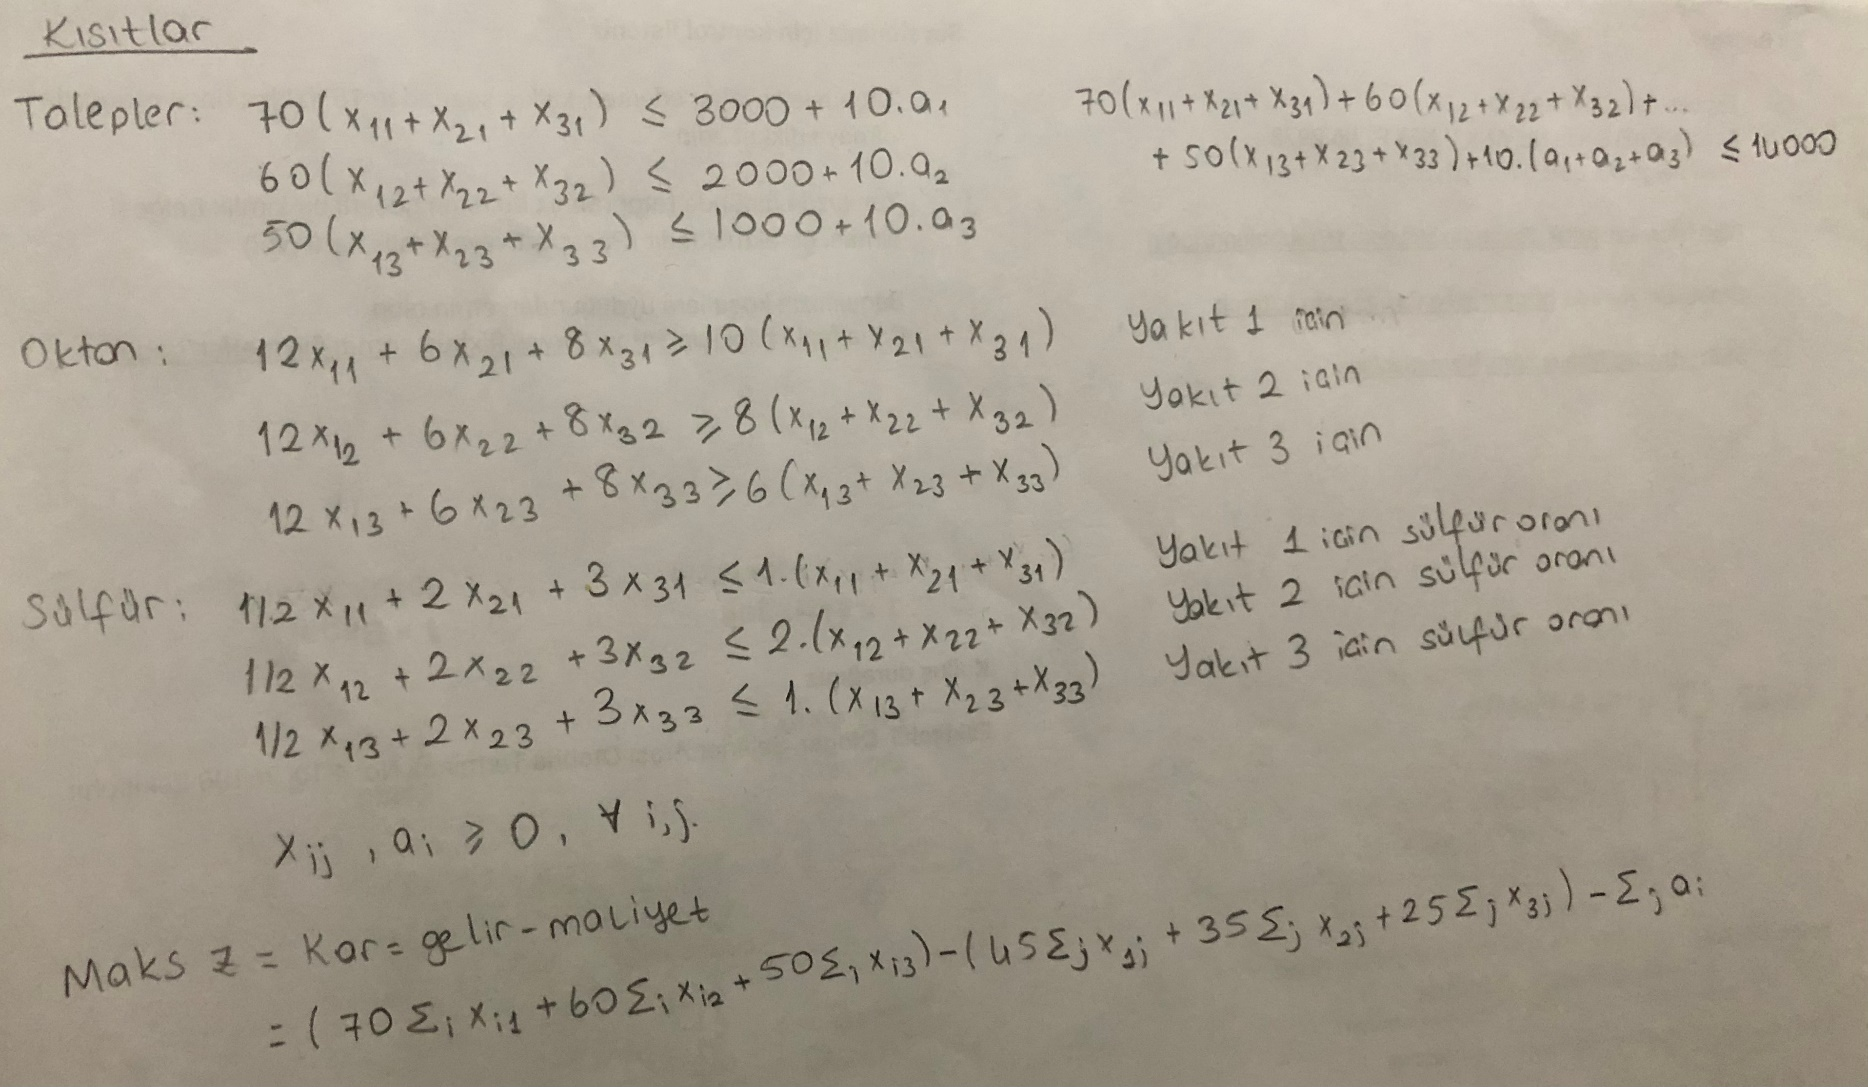 Kısıtlar
Talepler: 70(x₁₁+x₂₁+x₃₁) ≤ 3000+10.a₁
60(x₁₂+x₂₂+x₃₂) ≤ 2000+10.a₂
50(x₁₃+x₂₃+x₃₃) ≤ 1000+10.a₃
70(x₁₁+x₂₁+x₃₁)+60(x₁₂+x₂₂+x₃₂)+...
+50(x₁₃+x₂₃+x₃₃)+10.(a₁+a₂+a₃) ≤ 14000
Oktan: 12x₁₁+6x₂₁+8x₃₁ ≥ 10(x₁₁+x₂₁+x₃₁) Yakıt 1 için
12x₁₂+6x₂₂+8x₃₂ ≥ 8(x₁₂+x₂₂+x₃₂) Yakıt 2 için
12x₁₃+6x₂₃+8x₃₃ ≥ 6(x₁₃+x₂₃+x₃₃) Yakıt 3 için
Sülfür: 1/2x₁₁+2x₂₁+3x₃₁ ≤ 1.(x₁₁+x₂₁+x₃₁) Yakıt 1 için sülfür oranı
1/2x₁₂+2x₂₂+3x₃₂ ≤ 2.(x₁₂+x₂₂+x₃₂) Yakıt 2 için sülfür oranı
1/2x₁₃+2x₂₃+3x₃₃ ≤ 1.(x₁₃+x₂₃+x₃₃) Yakıt 3 için sülfür oranı
xᵢⱼ, aᵢ ≥ 0, ∀ i,j.
Maks z = Kar = gelir-maliyet
= (70Σᵢxᵢ₁+60Σᵢxᵢ₂+50Σᵢxᵢ₃)-(45Σⱼx₁ⱼ+35Σⱼx₂ⱼ+25Σⱼx₃ⱼ)-Σⱼaᵢ